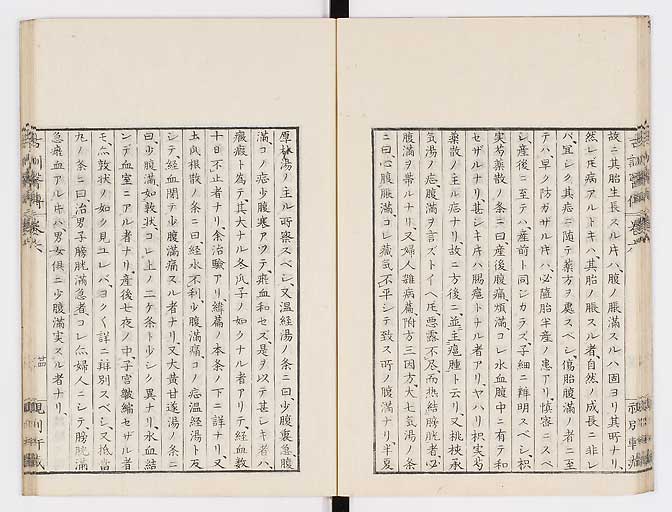 故ニ其胎生長スル片ハ腹ノ脹滿スルハ固ヨリ其所ナリ、
然レ𪜈病アルトキハ、其胎ノ脹スル者、自然ノ成長ニ非レ
バ、宜シク其症ニ随テ薬方ヲ處スベシ、傷胎腹滿ノ者ニ至
テハ早ク防ガザル片ハ、必墮胎半産ノ患アリ、慎密ニスベ
シ、産後ニ至テハ産前ト同シカラズ、子細ニ辨明スベシ、枳
実芍薬散ノ条ニ曰、産後腹痛煩滿コレ水血腹中ニ有テ和
セザルナリ、甚シキ片ハ腸癰トナル者アリ、ヤハリ枳実芍
薬散ノ主ル症ナリ、故ニ方後ニ、並主癰膿ト云リ、又桃核承
気湯ノ症、腹滿ヲ言ズトイヘ𪜈悪露不尽、而熱結膀胱者、必
腹滿ヲ帯ルナリ、又婦人雜病篇、附方三因方大七気湯ノ条
ニ曰、心腹脹滿、コレ蔵気不平シテ致ス所ノ腹滿ナリ、半夏
厚朴湯ノ主ル所察スベシ、又温経湯ノ条ニ曰、少腹裏急、腹
滿、コノ症少腹寒アツテ、瘀血和セズ、是ヲ以テ甚シキ者ハ、
癥瘕ト為テ其大ナル冬瓜子ノ如クナル者アリテ、経血数
十日不止者ナリ、余治験アリ、緯篇ノ本条ノ下ニ詳ナリ、又
土瓜根散ノ条ニ曰、経水不利、少腹滿痛、コノ症温経湯ト反
シテ、経血閉テ少腹滿痛スル者ナリ、又大黄甘遂湯ノ条ニ
曰、少腹滿、如敦状、コレ上ノ二ケ条ト少シク異ナリ、水血結
ンデ血室ニアル者ナリ、産後七夜ノ中、子宮
モ、亦敦状ノ如ク見ユレバ、ヨクく詳ニ辨別スベシ、又抵當
丸ノ条ニ曰、治男子膀胱滿急者、コレ亦婦人ニシテ、膀胱滿
急、瘀血アル片ハ男女俱ニ少腹滿実スル者ナリ、
廿四